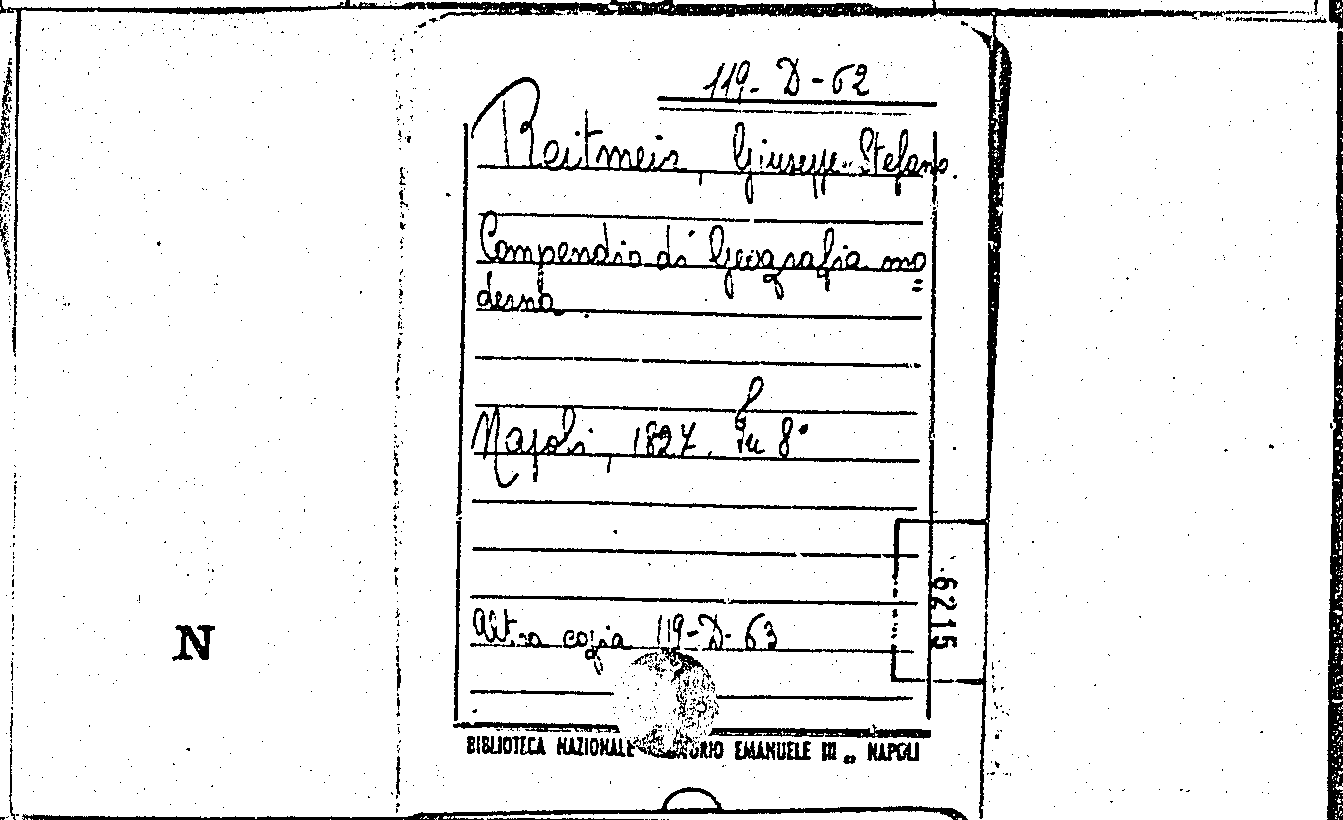 119-D-62
Reitmeir, Giuseppe-Stefano.
Compendio di Geografia mo=
derna.
Napoli, 1827. In 8°
6215
Altra copia 119-D-63
N
BIBLIOTECA NAZIONALE EMANUELE III NAPOLI